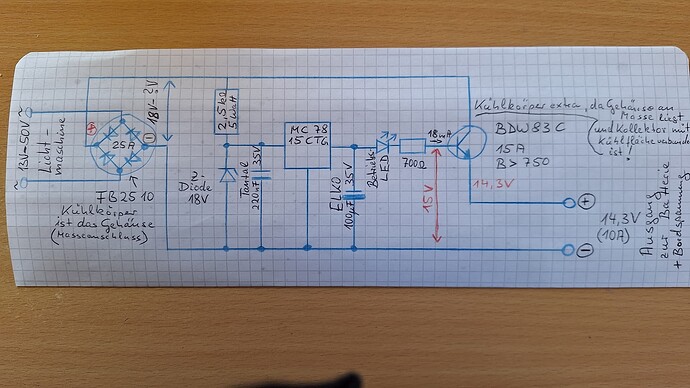 13V-50V~
~
Licht-
maschine
+
25A
-
FB2510
Kühlkörper
ist das Gehäuse
(Masseanschluss)
18V-?V
2,5kΩ
5Watt
Z-
Diode
18V
Tantal
220nF 35V
MC 78
15CT6
ELKO
100µF 35V
Betriebs
LED
700Ω
18mA
15V
14,3V
Kühlkörper extra, da Gehäuse an
Masse liegt
und Kollektor mit
Kühlfläche verbunden
ist!
BDW83C
15A
B>750
+
14,3V
(10A)
-
Ausgang
zur Batterie
+ Bordspannung